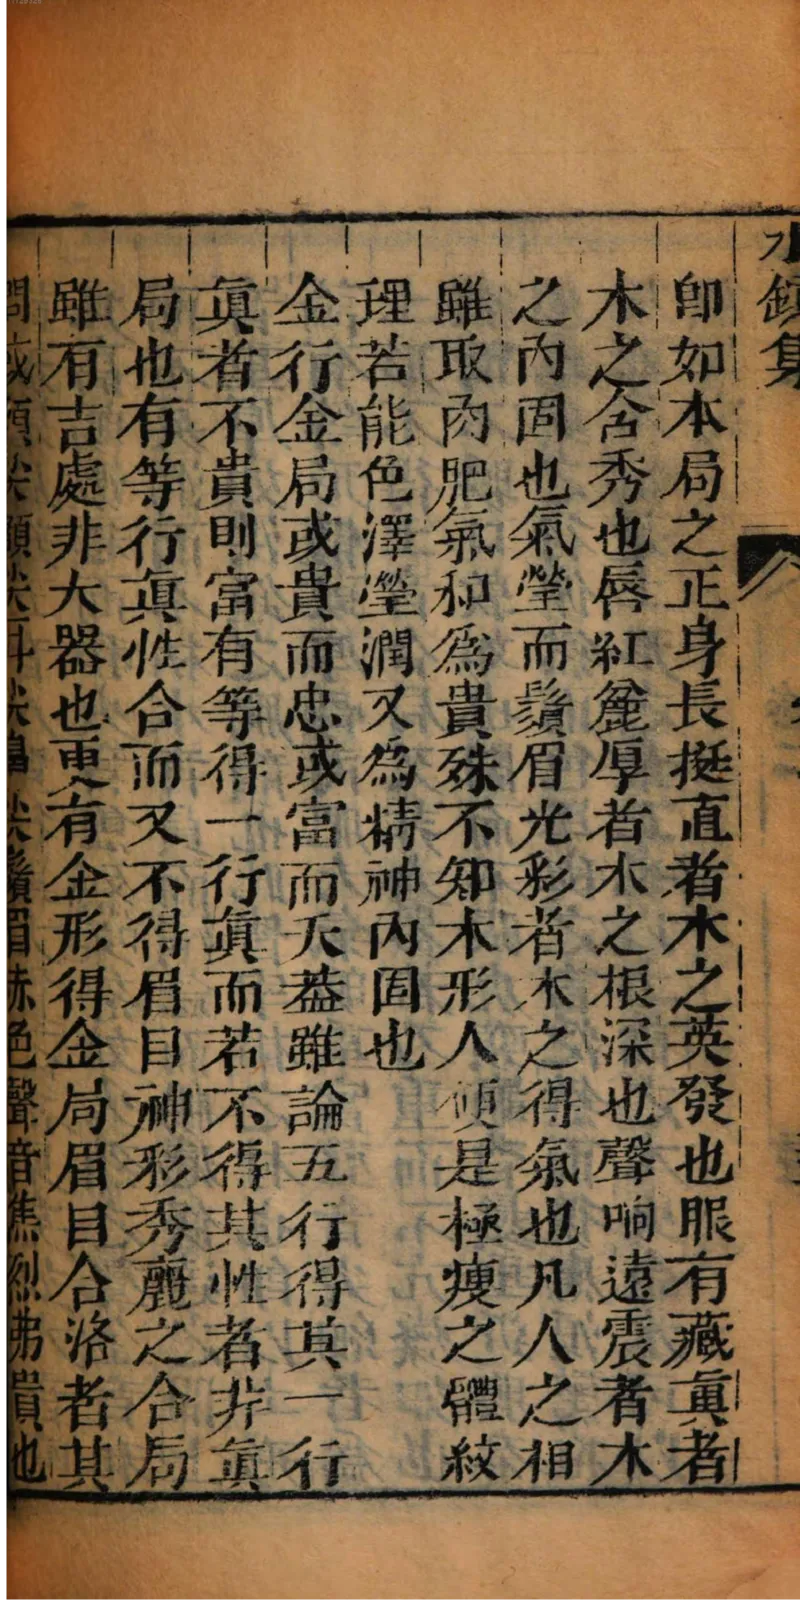 水鏡集
卽如本局之正身長挺直者木之英發也眼有藏眞者
木之含秀也唇紅⿱竹鹿厚者木之根深也聲响遠震者木
之內固也氣瑩而鬚眉光彩者木之得氣也凡人之相
雖取肉肥氣和爲貴殊不知木形人便是極瘦之體紋
理若能色澤瀅潤又爲精神內固也
金行金局或貴而忠或富而夭葢雖論五行得其一行
眞者不貴則富有等得一行眞而若不得其性者非眞
局也有等行眞性合而又不得眉目神彩秀麗之合局
雖有吉處非大器也更有金形得金局眉目合洛者其
問或頭尖額尖耳尖鼻尖鬚眉赤色聲音焦烈弗貴也